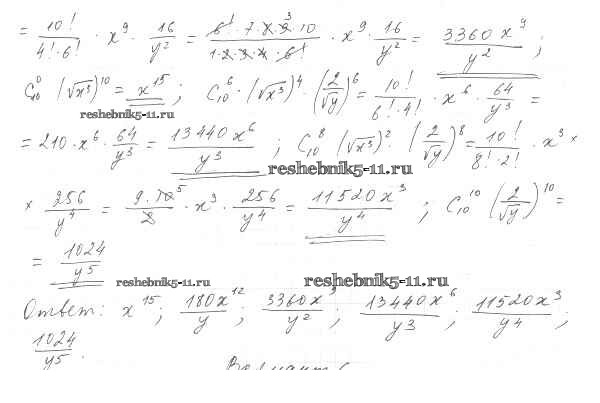 = 10!/(4!·6!) · x⁹ · 16/y² = (6!·7·8·9·10)/(1·2·3·4·6!) · x⁹ · 16/y² = 3360x⁹/y² ;
C₁₀⁰ (√x³)¹⁰ = x¹⁵ ; C₁₀⁶ · (√x³)⁴ · (2/√y)⁶ = 10!/(6!·4!) · x⁶ · 64/y³ =
reshebnik5-11.ru
= 210·x⁶·64/y³ = 13440x⁶/y³ ; C₁₀⁸ (√x³)² (2/√y)⁸ = 10!/(8!·2!) · x³ ×
reshebnik5-11.ru
× 256/y⁴ = 9·10/2 · x³ · 256/y⁴ = 11520x³/y⁴ ; C₁₀¹⁰ (2/√y)¹⁰ =
= 1024/y⁵
reshebnik5-11.ru reshebnik5-11.ru
Ответ: x¹⁵; 180x¹²/y ; 3360x⁹/y² ; 13440x⁶/y³ ; 11520x³/y⁴ ;
1024/y⁵ .